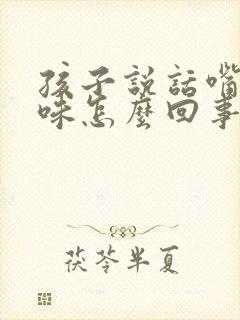 孩子説話嘴
味怎麼回事
茯苓半夏